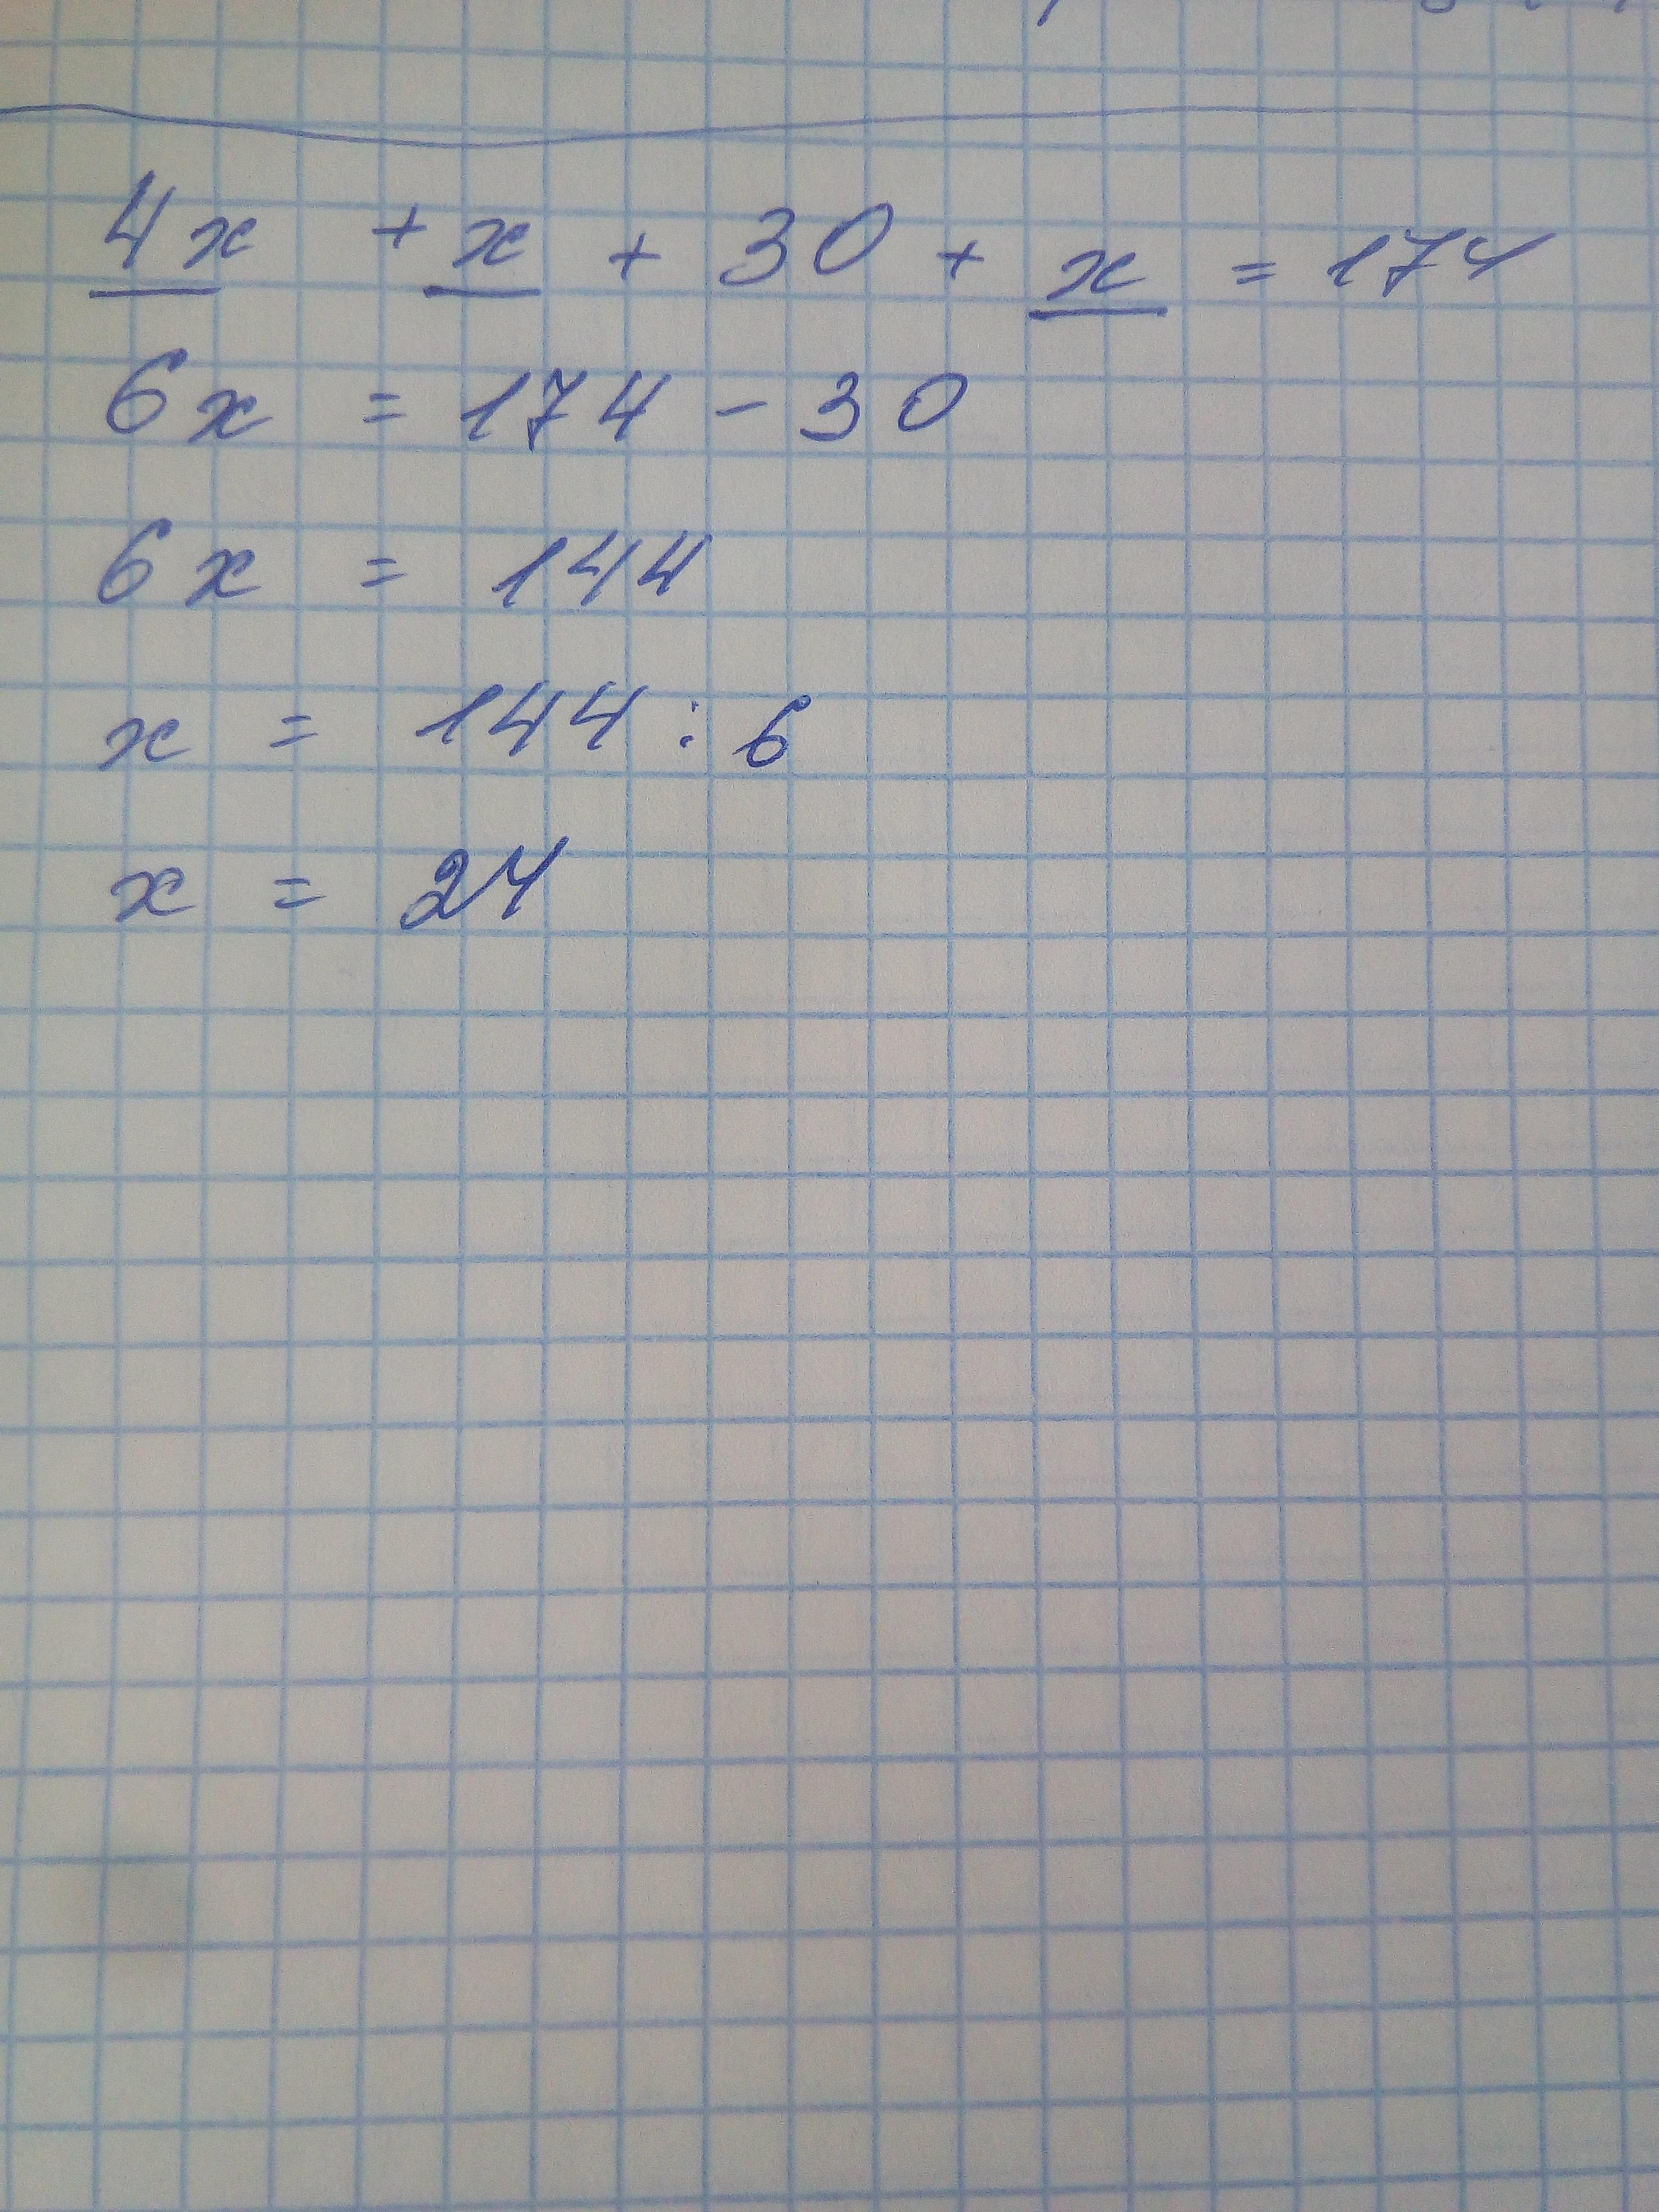 4x + x + 30 + x = 174
6x = 174 - 30
6x = 144
x = 144 : 6
x = 24